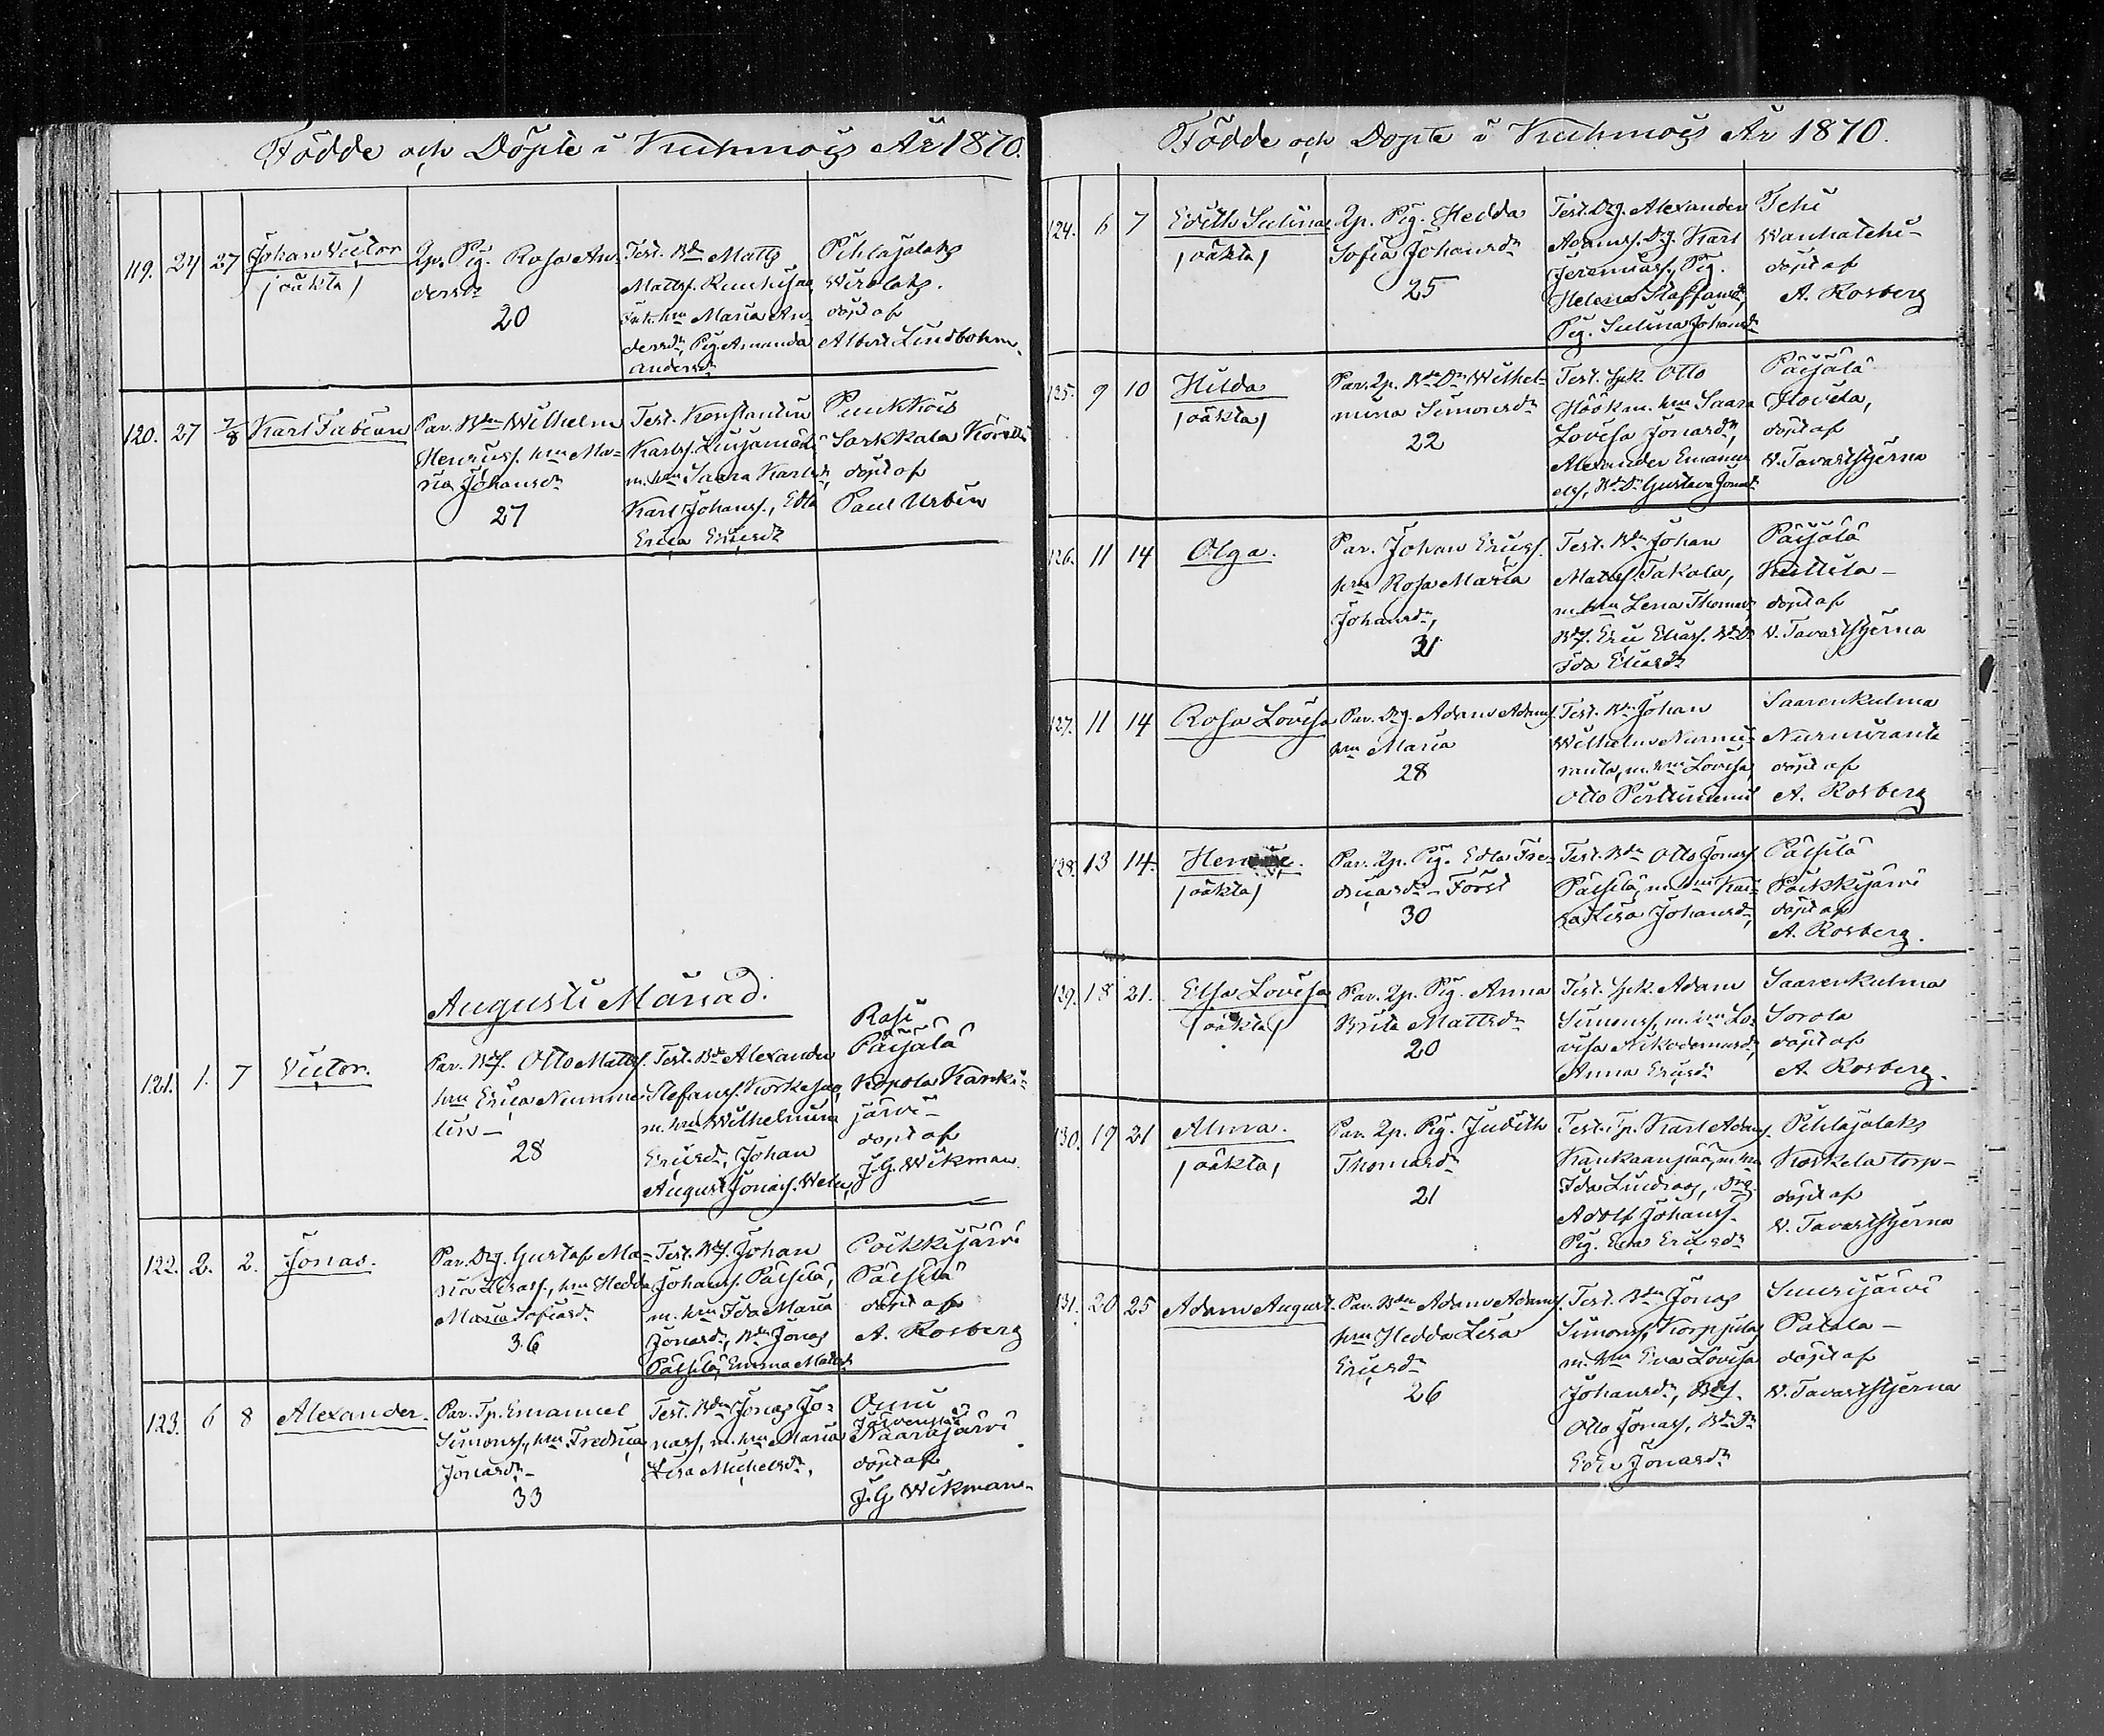 Födde och Döpte i Kuhmois År 1870.
119. 24 27 Johan Victor
/oäkta/
Qp. Pig. Rosa An-
dersdr
20
Test. Bdn Matts
Mattss. Ruuhijan
hm Maria An-
dersdr, Pig. Amanda
Andersdr
Pihlajalaks
Wirolaks.
döpt af
Albert Lindbohm.
120. 27 7/8 Karl Fabian
Par. Bdn Wilhelm
Henricss. hm Ma-
ria Johansdr
27
Test. Konstantin
Karlss. Linjamäki
m. hm Saara Karlsdr,
Karl Johanss., Edla
Erica Ericsdr
Puukkois
Sarkkala Körelli
döpt af
Paul Urbin
Augusti Månad.
121. 1. 7 Victor.
Par. Bdf. Otto Mattss.
hm Erica Numme-
lin –
28
Test. Bdn Alexander
Stefanss. Korkejan,
m. hm Wilhelmina
Ericsdr, Johan
August Jonass. Wehn,
Rasi
Päijälä
Kopola Kanki-
järvi –
döpt af
J. G. Wikman.
122. 2. 2. Jonas.
Par. Drg. Gustaf Ma-
hm Hedda
Maria Sofiasdr
36
Test. Bdf. Johan
Johanss. Pätsilä,
m. hm Ida Maria
Jonasdr, Bdn Jonas
Pätsilä, Emma Mattsdr
Poikkijärvi
Pätsilä
döpt af
A. Rosberg
123. 6 8 Alexander.
Par. Tp. Emanuel
Simonss., hm Fredrica
Jonasdr –
33
Test. Bdn Jonas Jo-
nass, m. hm Maria
Lisa Michelsdr,
Ouni
Järvenpää
Naarajärvi
döpt af
J. G. Wikman.
Födde och Döpte i Kuhmois År 1870.
124. 6 7 Edith Sulina
/oäkta/
Qp. Pig. Hedda
Sofia Johansdr
25
Test. Drg. Alexander
Adamss. Drg. Karl
Jeremiass., Pig.
Helena Staffansdr,
Pig. Sulina Johansdr
Tehi
Wanhatehi –
döpt af
A. Rosberg
125. 9 10 Hilda
/oäkta/
Par. Qp. Bdr Dr Wilhel-
mina Simonsdr
22
Test. Spk. Otto
Höök m. hm Saara
Lovisa Jonasdr,
Alexander Emanu-
elss, Bdr Dr Gustava Jonasdr
Päijälä
Hovila,
döpt af
W. Tavaststjerna
126. 11 14 Olga.
Par. Johan Ericss.
hm Rosa Maria
Johansdr,
31
Test. Bdn Johan
Matss. Takala,
m. hm Lena Thomasdr
Bdf. Eric Eliass. Bdr Dr
Ida Eliasdr
Päijälä
Huttila –
döpt af
W. Tavaststjerna
127. 11 14 Rosa Lovisa
Par. Drg. Adam Adamss.
hm Maria
28
Test. Bdn Johan
Wilhelm Nurmi-
ranta, m. hm Lovisa,
Otto Perttuniemi
Saarenkulma
Nurmiranta
döpt af
A. Rosberg
128. 13 14.
/oäkta/
Par. Qp. Pig. Edla Fre-
dricsdr – Först
30
Test. Bdn Otto Jonass.
Pätsilä, m. hm Kai-
sa Lisa Johansdr,
Pätsilä
Poikkijärvi
döpt af
A. Rosberg.
129. 18 21. Elsa Lovisa
/oäkta/
Par. Qp. Pig. Anna
Brita Mattsdr
20
Test. Spk. Adam
Simonss, m. hm Lo-
visa Nikodemusdr,
Anna Ericsdr
Saarenkulma
Sorola
döpt af
A. Rosberg.
130. 19 21 Alma.
/oäkta/
Par. Qp. Pig. Judith
Thomasdr
21
Test. Tp. Karl Adamss.
Kankaanpää, m. hm
Ida Lindroos, Drg
Adolf Johanss.
Pig. Eva Ericsdr
Pihlajalaks
Koskela torp –
döpt af
W. Tavaststjerna
131. 20 25 Adam August.
Par. Bdn Adam Adamss.
hm Hedda Lisa
Ericsdr
26
Test. Bdn Jonas
Simonss, Korpjula,
m. hm Eva Lovisa
Johansdr, Bdf.
Otto Jonass, Bdr Dr
Edla Jonasdr
Suurijärvi
Patala –
döpt af
W. Tavaststjerna